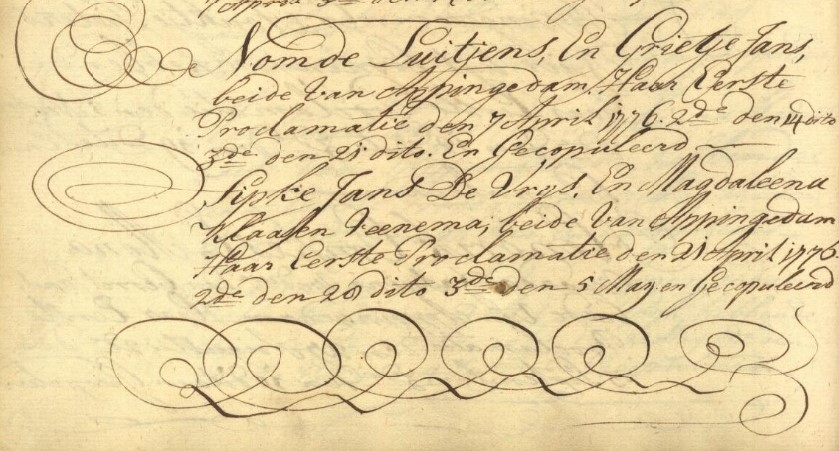 Nomde Luitjens, En Grietje Jans,
beide van Appingedam. Haar Eerste
Proclamatie den 7 April 1776. 2de den 14 dito
3de den 21 dito. En Gecopuleerd
Sipke Jans De Vrys. En Magdaleena
Klaasen Veenema; beide van Appingedam
Haar Eerste Proclamatie den 21 April 1776.
2de den 28 dito 3de den 5 May en Gecopuleerd